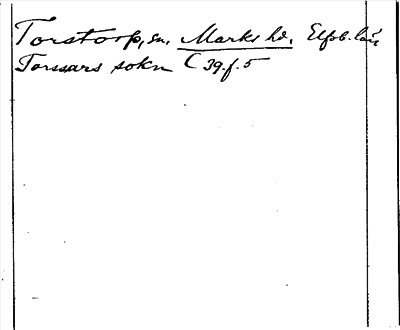 Torstorp, sn. Marks hd. Elfsb. län
Torssars sokn C 39.f.5